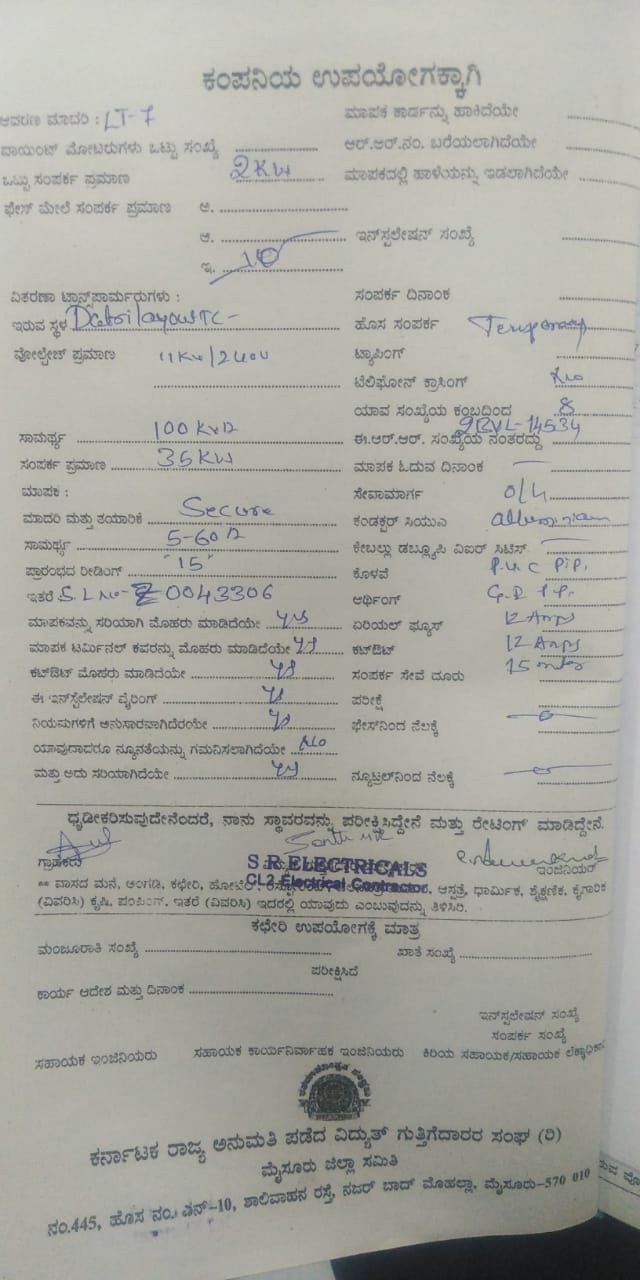 ಕಂಪನಿಯ ಉಪಯೋಗಕ್ಕಾಗಿ
ಆವರಣ ಮಾದರಿ : LT-7
ಮಾಪಕ ಕಾರ್ಡನ್ನು ಹಾಕಿದೆಯೇ
ಪಾಯಿಂಟ್ ಮೋಟರುಗಳು ಒಟ್ಟು ಸಂಖ್ಯೆ
ಆರ್.ಆರ್.ನಂ. ಬರೆಯಲಾಗಿದೆಯೇ
ಒಟ್ಟು ಸಂಪರ್ಕ ಪ್ರಮಾಣ 2KW
ಮಾಪಕದಲ್ಲಿ ಹಾಳೆಯನ್ನು ಇಡಲಾಗಿದೆಯೇ
ಫೇಸ್ ಮೇಲೆ ಸಂಪರ್ಕ ಪ್ರಮಾಣ ಅ.
ಆ.
ಇನ್‌ಸ್ಟಲೇಷನ್ ಸಂಖ್ಯೆ
ಇ. 1Ø
ವಿತರಣಾ ಟ್ರಾನ್ಸ್‌ಫಾರ್ಮರುಗಳು :
ಸಂಪರ್ಕ ದಿನಾಂಕ
ಇರುವ ಸ್ಥಳ
ಹೊಸ ಸಂಪರ್ಕ Temporary
ವೋಲ್ಟೇಜ್ ಪ್ರಮಾಣ 11KV/
ಟ್ಯಾಪಿಂಗ್
ಟೆಲಿಫೋನ್ ಕ್ರಾಸಿಂಗ್ No
ಯಾವ ಸಂಖ್ಯೆಯ ಕಂಬದಿಂದ 8
ಸಾಮರ್ಥ್ಯ 100 KVA
ಈ.ಆರ್.ಆರ್. ಸಂಖ್ಯೆಯ ನಂತರದ್ದು
ಸಂಪರ್ಕ ಪ್ರಮಾಣ 35KW
ಮಾಪಕ ಓದುವ ದಿನಾಂಕ
ಮಾಪಕ :
ಸೇವಾಮಾರ್ಗ O/H
ಮಾದರಿ ಮತ್ತು ತಯಾರಿಕೆ Secure
ಕಂಡಕ್ಟರ್ ಸಿಯುಎ
ಸಾಮರ್ಥ್ಯ 5-60A
ಕೇಬಲ್ಲು ಡಬ್ಲ್ಯೂಪಿ ವಿಐಆರ್ ಸಿಟಿಸ್
ಪ್ರಾರಂಭದ ರೀಡಿಂಗ್ "15"
ಕೊಳವೆ P.V.C Pip.
ಇತರೆ S.L No- 0043306
ಅರ್ಥಿಂಗ್
ಮಾಪಕವನ್ನು ಸರಿಯಾಗಿ ಮೊಹರು ಮಾಡಿದೆಯೇ yes
ಏರಿಯಲ್ ಫ್ಯೂಸ್ 12 Amps
ಮಾಪಕ ಟರ್ಮಿನಲ್ ಕವರನ್ನು ಮೊಹರು ಮಾಡಿದೆಯೇ ys
ಕಟ್‌ಔಟ್ 12 Amps
ಕಟ್‌ಔಟ್ ಮೊಹರು ಮಾಡಿದೆಯೇ ys
ಸಂಪರ್ಕ ಸೇವೆ ದೂರು 15 mter
ಈ ಇನ್‌ಸ್ಟಲೇಷನ್ ವೈರಿಂಗ್ ys
ಪರೀಕ್ಷೆ
ನಿಯಮಗಳಿಗೆ ಅನುಸಾರವಾಗಿದೆಯೇ ys
ಫೇಸ್‌ನಿಂದ ನೆಲಕ್ಕೆ
ಯಾವುದಾದರೂ ನ್ಯೂನತೆಯನ್ನು ಗಮನಿಸಲಾಗಿದೆಯೇ No
ಮತ್ತು ಅದು ಸರಿಯಾಗಿದೆಯೇ ys
ನ್ಯೂಟ್ರಲ್‌ನಿಂದ ನೆಲಕ್ಕೆ
ಧೃಡೀಕರಿಸುವುದೇನೆಂದರೆ, ನಾನು ಸ್ಥಾವರವನ್ನು ಪರೀಕ್ಷಿಸಿದ್ದೇನೆ ಮತ್ತು ರೇಟಿಂಗ್ ಮಾಡಿದ್ದೇನೆ.
ಗ್ರಾಹಕರು
S R ELECTRICALS
ಇಂಜಿನಿಯರ್
CL2 Electrical Contractor
** ವಾಸದ ಮನೆ, ಅಂಗಡಿ, ಕಛೇರಿ, ಹೋಟೆಲ್, ಆಸ್ಪತ್ರೆ, ಧಾರ್ಮಿಕ, ಶೈಕ್ಷಣಿಕ, ಕೈಗಾರಿಕ
(ವಿವರಿಸಿ) ಕೃಷಿ, ಪಂಪಿಂಗ್, ಇತರೆ (ವಿವರಿಸಿ) ಇದರಲ್ಲಿ ಯಾವುದು ಎಂಬುವುದನ್ನು ತಿಳಿಸಿರಿ.
ಕಛೇರಿ ಉಪಯೋಗಕ್ಕೆ ಮಾತ್ರ
ಮಂಜೂರಾತಿ ಸಂಖ್ಯೆ
ಖಾತೆ ಸಂಖ್ಯೆ
ಪರೀಕ್ಷಿಸಿದೆ
ಕಾರ್ಯ ಆದೇಶ ಮತ್ತು ದಿನಾಂಕ
ಇನ್‌ಸ್ಟಲೇಷನ್ ಸಂಖ್ಯೆ
ಸಂಪರ್ಕ ಸಂಖ್ಯೆ
ಸಹಾಯಕ ಇಂಜಿನಿಯರು ಸಹಾಯಕ ಕಾರ್ಯನಿರ್ವಾಹಕ ಇಂಜಿನಿಯರು ಕಿರಿಯ ಸಹಾಯಕ/ಸಹಾಯಕ
ಕರ್ನಾಟಕ ರಾಜ್ಯ ಅನುಮತಿ ಪಡೆದ ವಿದ್ಯುತ್ ಗುತ್ತಿಗೆದಾರರ ಸಂಘ (ರಿ)
ಮೈಸೂರು ಜಿಲ್ಲಾ ಸಮಿತಿ
ನಂ.445, ಹೊಸ ನಂ. ಎನ್-10, ಶಾಲಿವಾಹನ ರಸ್ತೆ, ನಜರ್ ಬಾದ್ ಮೊಹಲ್ಲಾ, ಮೈಸೂರು-570 010